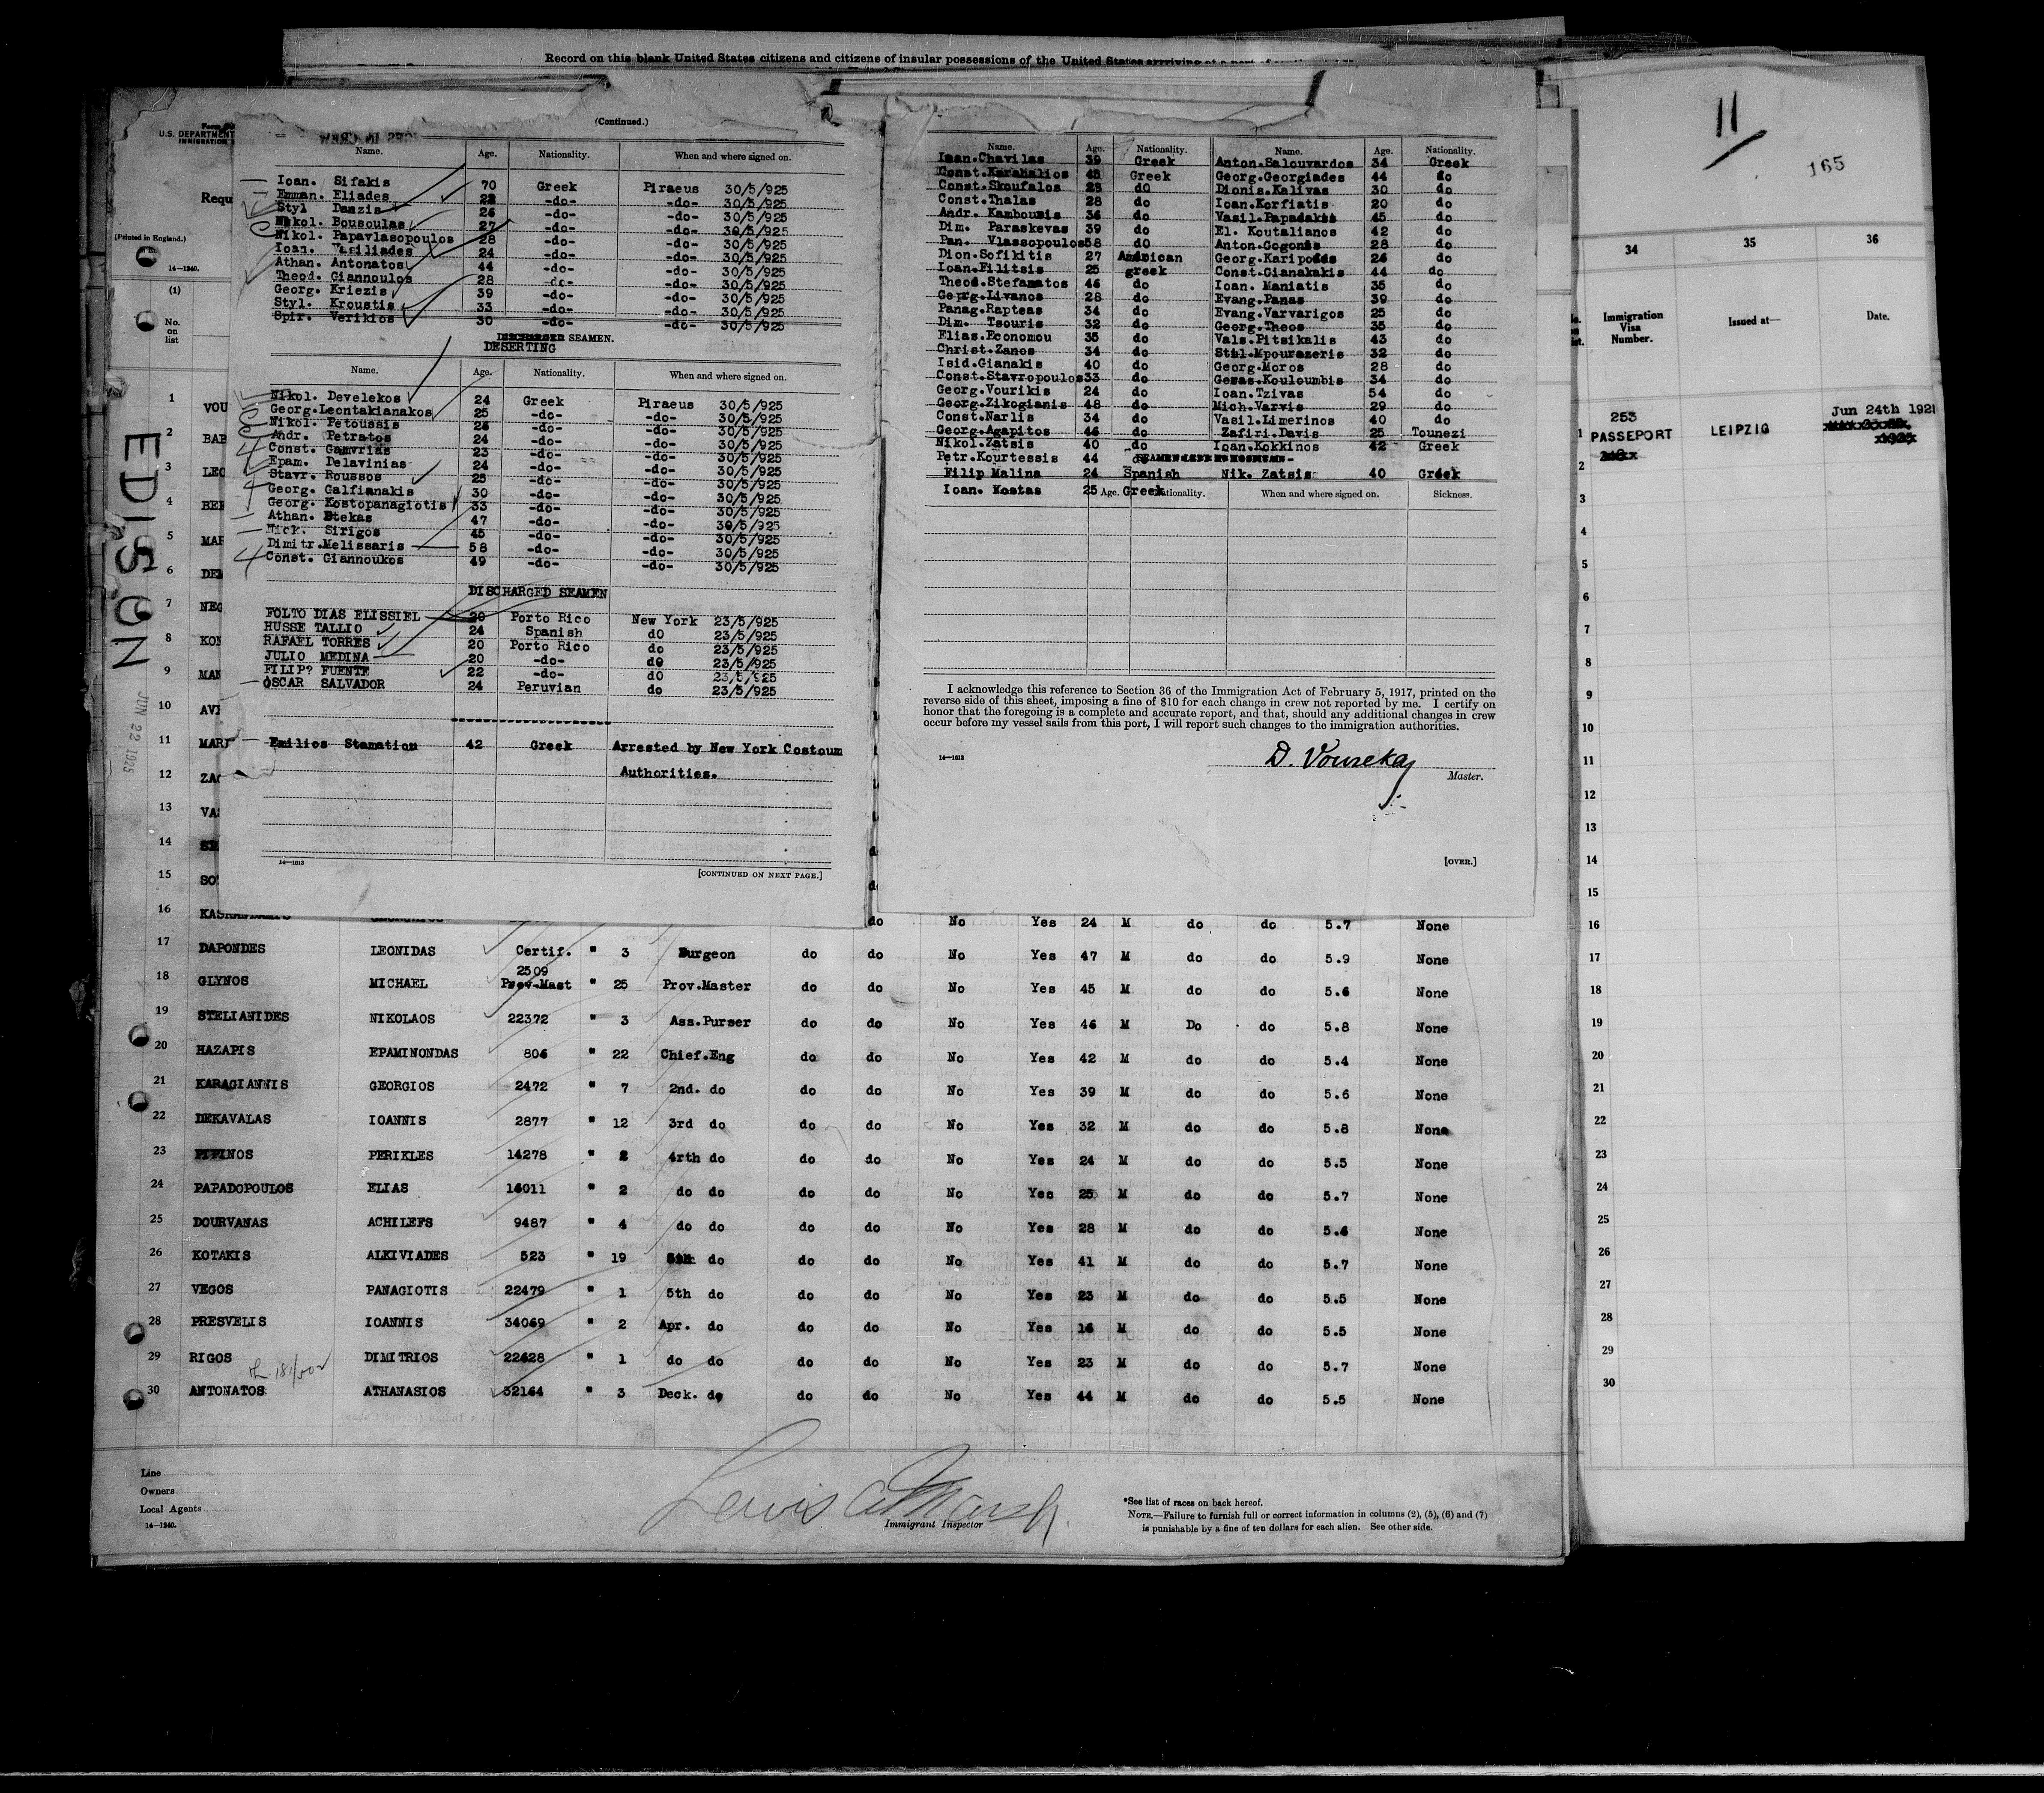 Record on this blank United States citizens and citizens of insular possessions of the United States arriving at a port of
U.S. DEPARTMENT
IMMIGRATION
Requ
(Printed in England.)
14—1240.
(1)
No. on list
EDISON
JUN 22 1925
(Continued.)
Name. Age. Nationality. When and where signed on.
Ioan. Sifakis 70 Greek Piraeus 30/5/925
Emman. Eliades 22 -do- -do- 30/5/925
Styl Danzis 26 -do- -do- 30/5/925
Nikol. Bousoulas 27 -do- -do- 30/5/925
Nikol. Papavlasopoulos 28 -do- -do- 30/5/925
Ioan. Vasiliades 24 -do- -do- 30/5/925
Athan. Antonatos 44 -do- -do- 30/5/925
Theod. Giannoulos 28 -do- -do- 30/5/925
Georg. Kriezis 39 -do- -do- 30/5/925
Styl. Kroustis 33 -do- -do- 30/5/925
Spir. Verikios 30 -do- -do- 30/5/925
DISCHARGED SEAMEN.
DESERTING
Name. Age. Nationality. When and where signed on.
Nikol. Develekos 24 Greek Piraeus 30/5/925
Georg.Leontakianakos 25 -do- -do- 30/5/925
Nikol. Petoussis 26 -do- -do- 30/5/925
Andr. Petratos 24 -do- -do- 30/5/925
Const. Gamvrias 23 -do- -do- 30/5/925
Epam. Delavinias 24 -do- -do- 30/5/925
Stavr. Roussos 25 -do- -do- 30/5/925
Georg. Galfianakis 30 -do- -do- 30/5/925
Georg. Kostopanagiotis 33 -do- -do- 30/5/925
Athan. Stekas 47 -do- -do- 30/5/925
Mick. Sirigos 45 -do- -do- 30/5/925
Dimitr.Melissaris 58 -do- -do- 30/5/925
Const. Giannoukos 49 -do- -do- 30/5/925
DISCHARGED SEAMEN
FOLTO DIAS ELISSIEL 20 Porto Rico New York 23/5/925
HUSSE TALLIO 24 Spanish dO 23/5/925
RAFAEL TORRES 20 Porto Rico do 23/5/925
JULIO MEDINA 20 -do- do 23/5/925
FILIP? FUENTE 22 -do- dO 23/5/925
OSCAR SALVADOR 24 Peruvian do 23/5/925
Emilios Stamatiou 42 Greek Arrested by New York Costoum
Authorities.
14—1613
[CONTINUED ON NEXT PAGE.]
Name. Age. Nationality. Name. Age. Nationality.
Ioan.Chavilas 39 Greek Anton.Salouvardos 34 Greek
Const.Karahalios 45 Greek Georg.Georgiades 44 do
Const.Skoufalos 28 dO Dionis.Kalivas 30 do
Const.Thalas 28 do Ioan.Korfiatis 20 do
Andr. Kambousis 36 do Vasil.Papadakis 45 do
Dim. Paraskevas 39 do El. Koutalianos 42 do
Pan. Vlassopoulos 58 dO Anton.Gogonis 28 do
Dion.Sofikitis 27 American Georg.Karipodis 26 do
Ioan.Filitsis 25 greek Const.Gianakakis 44 do
Theod.Stefanatos 46 do Ioan. Maniatis 35 do
Georg.Livanos 28 do Evang.Panas 39 do
Panag.Rapteas 34 do Evang.Varvarigos 25 do
Dim. Tsouris 32 do Georg.Theos 35 do
Elias.Economou 35 do Vals.Pitsikalis 43 do
Christ.Zanos 34 do Stil.Mpourazeris 32 do
Isid.Gianakis 40 do Georg.Moros 28 do
Const.Stavropoulos 33 do Geras.Kouloumbis 34 do
Georg.Vourikis 24 do Ioan.Tzivas 54 do
Georg.Zikogianis 48 do Mich.Varvis 29 do
Const.Narlis 34 do Vasil.Limerinos 40 do
Georg.Agapitos 46 do Zafiri.Davis 25 Tounezi
Nikol.Zatsis 40 do Ioan.Kokkinos 42 Greek
Petr.Kourtessis 44 do
Filip Malina 24 Spanish Nik. Zatsis 40 Greek
Ioan. Kostas 25 Age. Greek Nationality. When and where signed on. Sickness.
I acknowledge this reference to Section 36 of the Immigration Act of February 5, 1917, printed on the
reverse side of this sheet, imposing a fine of $10 for each change in crew not reported by me. I certify on
honor that the foregoing is a complete and accurate report, and that, should any additional changes in crew
occur before my vessel sails from this port, I will report such changes to the immigration authorities.
14—1613
D. Voureka
Master.
[OVER.]
11
165
34 35 36
Immigration Visa Number. Issued at— Date.
253 Jun 24th 192
1 PASSEPORT LEIPZIG
2
3
4
5
6
7
8
9
10
11
12
13
14
15
16
17
18
19
20
21
22
23
24
25
26
27
28
29
30
1 VOU
2 BAB
3 LEO
4 BEN
5 MAR
6 DEM
7 NEG
8 KON
9 MAN
10 AVI
11 MARI
12 ZAC
13 VAS
14
15 SO
16 do No Yes 24 M do do 5.7 None
17 DAPONDES LEONIDAS Certif. " 3 Surgeon do do No Yes 47 M do do 5.9 None
18 GLYNOS MICHAEL 2509 Prov-Mast " 25 Prov.Master do do No Yes 45 M do do 5.6 None
19 STELIANIDES NIKOLAOS 22372 " 3 Ass.Purser do do No Yes 46 M Do do 5.8 None
20 HAZAPIS EPAMINONDAS 806 " 22 Chief.Eng do do No Yes 42 M do do 5.4 None
21 KARAGIANNIS GEORGIOS 2472 " 7 2nd. do do do No Yes 39 M do do 5.6 None
22 DEKAVALAS IOANNIS 2877 " 12 3rd do do do No Yes 32 M do do 5.8 None
23 PIPINOS PERIKLES 14278 " 2 4rth do do do No Yes 24 M do do 5.5 None
24 PAPADOPOULOS ELIAS 16011 " 2 do do do do No Yes 25 M do do 5.7 None
25 DOURVANAS ACHILEFS 9487 " 4 do do do do No Yes 28 M do do 5.6 None
26 KOTAKIS ALKIVIADES 523 " 19 5th do do do No Yes 41 M do do 5.7 None
27 VEGOS PANAGIOTIS 22479 " 1 5th do do do No Yes 23 M do do 5.5 None
28 PRESVELIS IOANNIS 34069 " 2 Apr. do do do No Yes 16 M do do 5.5 None
29 RIGOS DIMITRIOS 22628 " 1 do do do do No Yes 23 M do do 5.7 None
30 ANTONATOS ATHANASIOS 32164 " 3 Deck. do do do No Yes 44 M do do 5.5 None
Line
Owners
Local Agents
14—1240.
Lewis A Marsh
Immigrant Inspector
*See list of races on back hereof.
NOTE.—Failure to furnish full or correct information in columns (2), (5), (6) and (7)
is punishable by a fine of ten dollars for each alien. See other side.